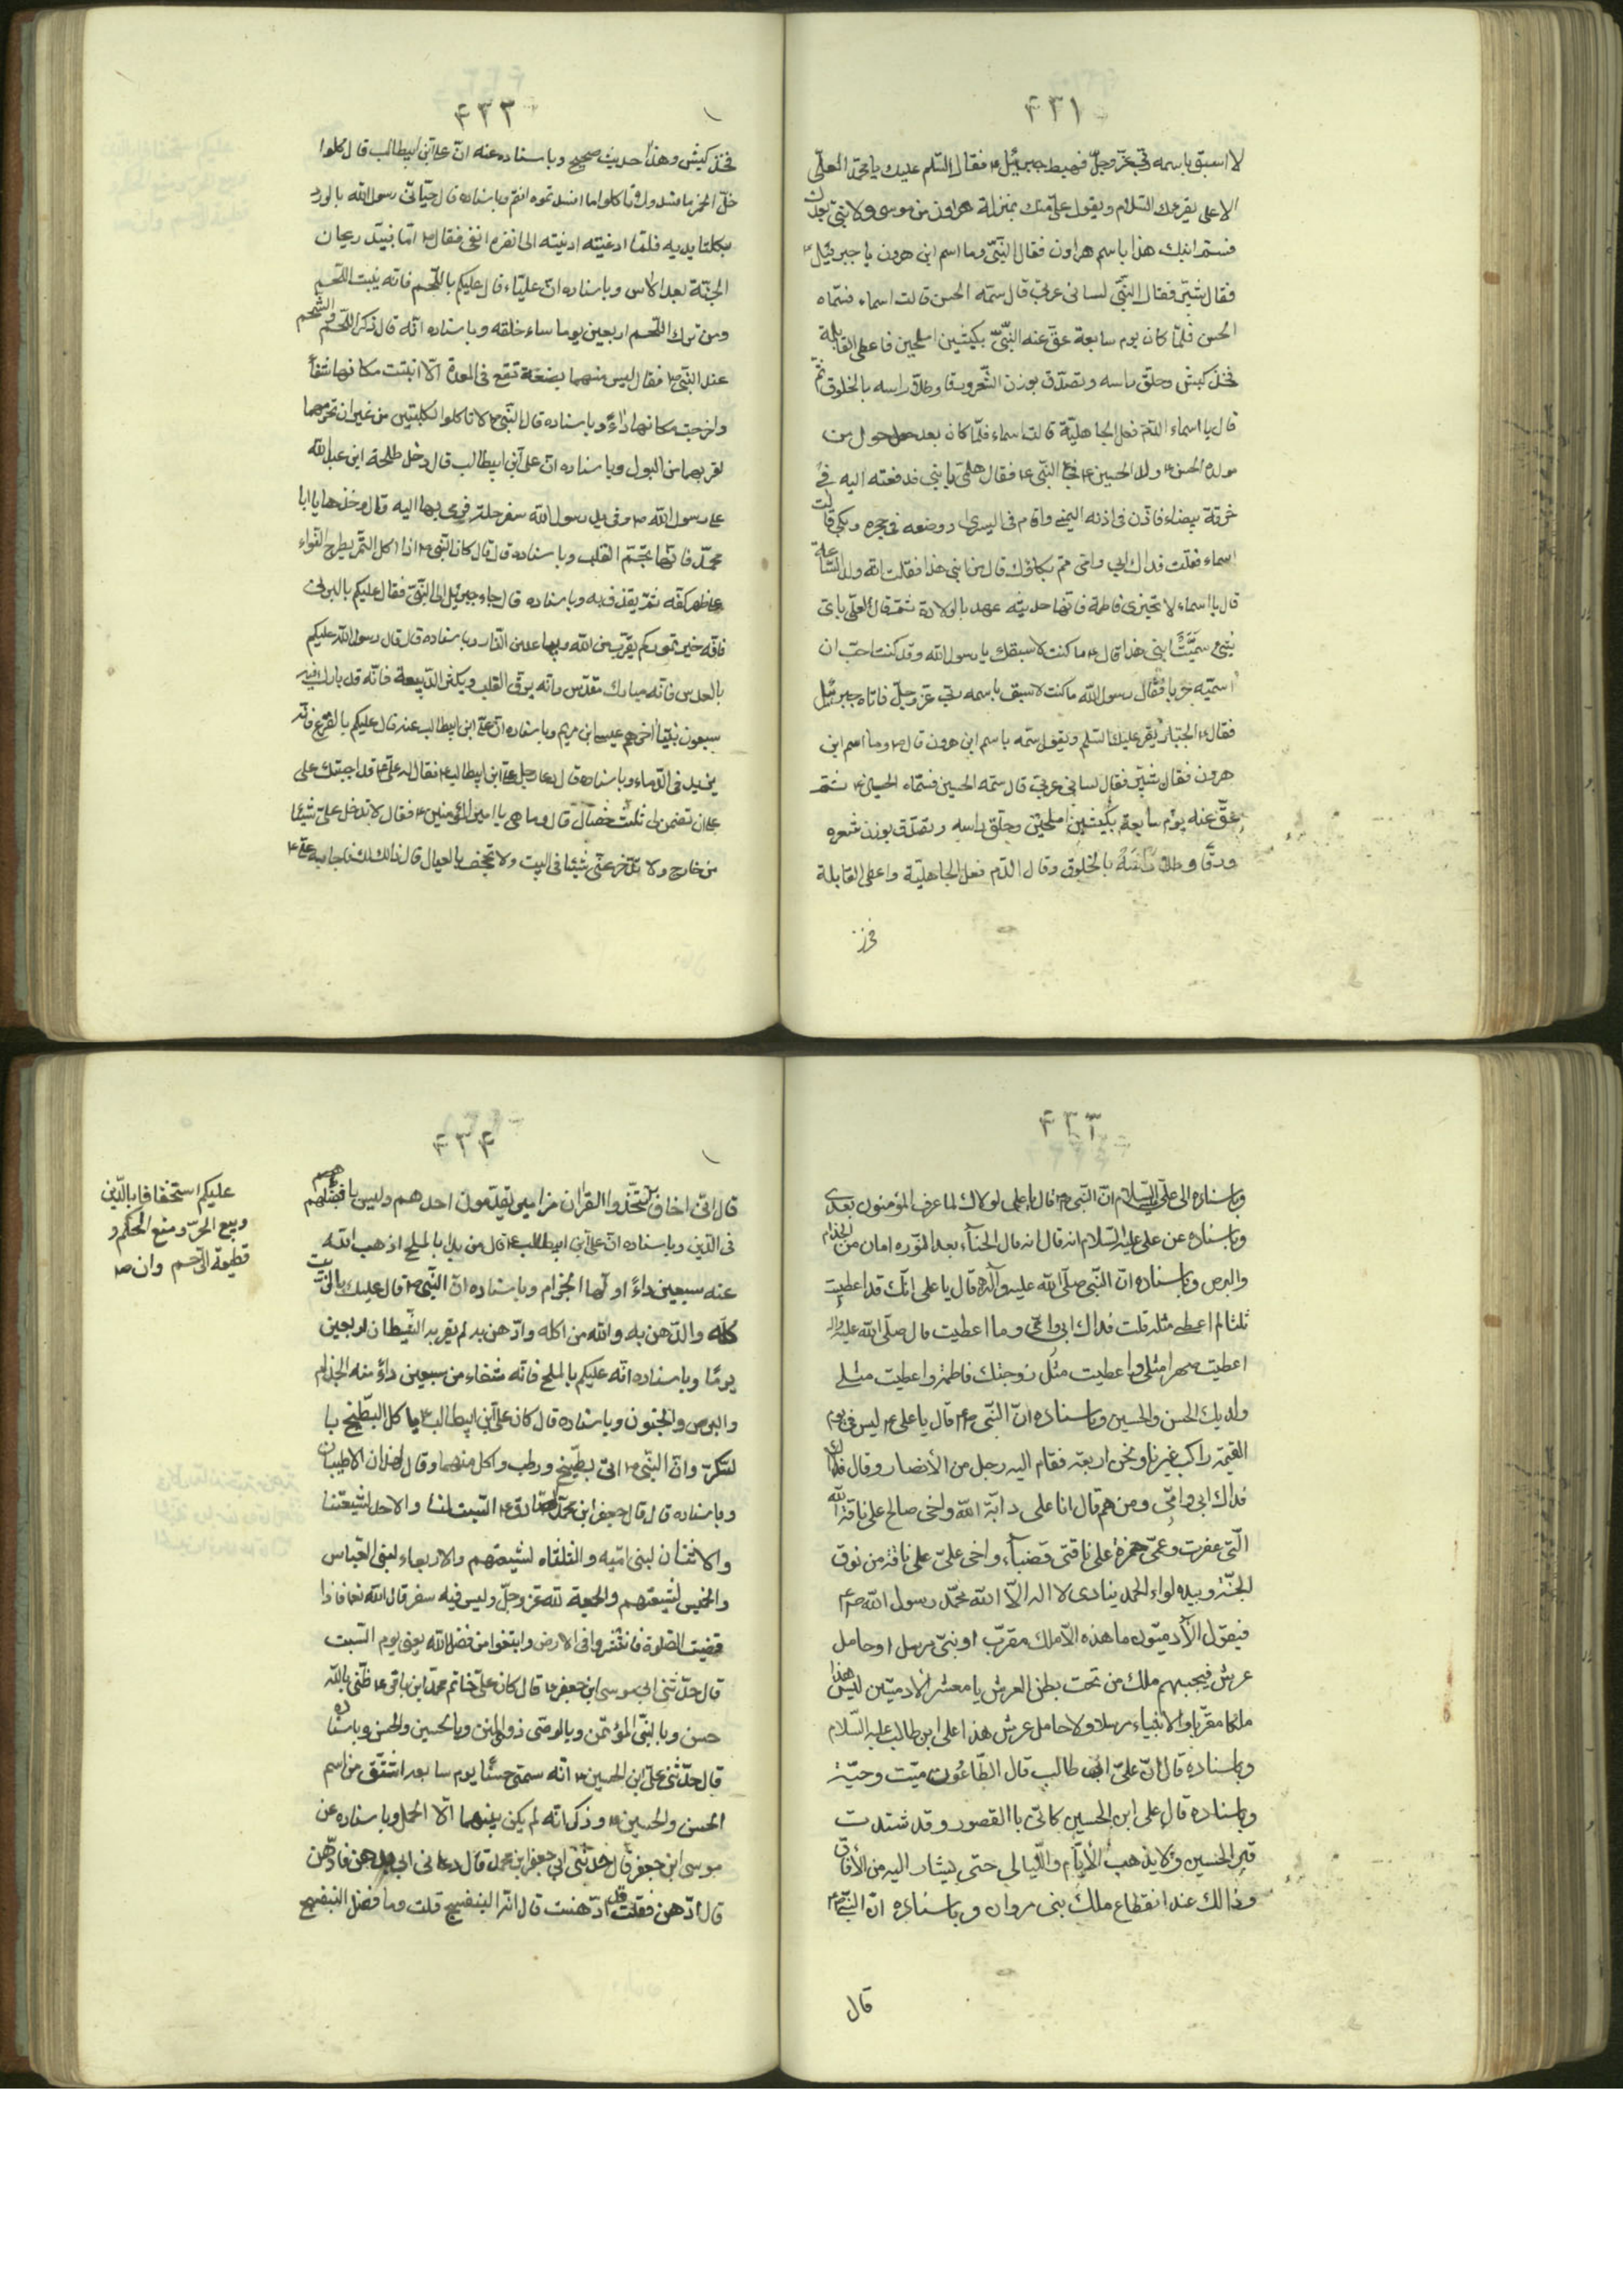 ۴۳۱
لا اسبق باسمه ربّي عزّ وجلّ فهبط جبرئيل ۴ فقال السّلم عليك يا محمّد العليّ
الاعلى يقرءك السّلام ويقول علىّ منك بمنزلة هرون من موسى ولا نبيّ بعدك
فسمّ ابنك هذا باسم هرون فقال النّبيّ وما اسم ابن هرون يا جبرئيل
فقال شبّر فقال النّبيّ لسانى عربىّ قال سمّه الحسن قالت اسماء فسمّاه
الحسن فلمّا كان يوم سابعة عقّ عنه النّبيّ بكبشين املحين فاعطى القابلة
فخذ كبش وحلق راسه وتصدّق بوزن الشّعر ورقا وطلا راسه بالخلوق ثمّ
قال يا اسماء الدّم فعل الجاهليّة قالت اسماء فلمّا كان بعد حول من
مولد الحسن ولد الحسين ۴ فجاء النّبي ۴ فقال هلمّى يا بنى فدفعته اليه فى
خرقة بيضاء فاذّن فى اذنه اليمنى واقام فى اليسرى ووضعه فى حجره وبكى قالت
اسماء فقلت فداك ابى وامّى ممّ بكاؤك قال من ابنى هذا فقلت انّه ولد السّاعة
قال يا اسماء لا تخبرى فاطمة فانّها حديثه عهد بالولادة ثمّ قال لعلىّ باىّ
شىء سمّيت ابنى هذا قال ۴ ما كنت لاسبقك يا رسول الله وقد كنت احبّ ان
اسمّيه حربا فقال رسول الله ما كنت لاسبق باسمه ربّى عزّ وجلّ فاتاه جبرئيل
فقال ۴ الجبّار يقرء عليك السّلم ويقول سمّه باسم ابن هرون قال ۴ وما اسم ابن
هرون فقال شبّير فقال لسانى عربىّ قال سمّه الحسين فسمّاه الحسين ۴ ثمّ
عقّ عنه يوم سابعة بكبشين املحين وحلق راسه وتصدّق بوزن شعره
ورقا وطلا راسه بالخلوق وقال الدّم فعل الجاهليّة واعطى القابلة
۴۳۳
فخذ كبش وهذا حديث صحيح وباسناده عنه انّ علىّ ابن ابيطالب قال كلوا
خلّ الخمر ما فسد ولا تاكلوا ما افسدتموه انتم وباسناده قال حيّانى رسول الله بالورد
بكلتا يديه فلمّا ادنيته الى انفى فقال ۴ امّا سيّد ريحان
الجنّة بعد الاس وباسناده انّ عليّا قال عليكم باللّحم فانّه ينبت اللّحم
ومن ترك اللّحم اربعين يوما ساء خلقه وباسناده انّه قال ذكر اللّحم والشّحم
عند النّبىّ فقال ليس منهما بضعة تقع فى المعدة الّا انبتت مكانها شفاءً
واخرجت مكانها داءً وباسناده قال النّبىّ لا تاكلوا الكليتين من غير ان تحرّمهما
لقربهما من البول وباسناده انّ علىّ ابن ابيطالب قال دخل طلحة ابن عبد الله
على رسول الله وفى يد رسول الله سفرجلة فرمى بها اليه وقال خذها يا ابا
محمّد فانّها تجمّ القلب وباسناده قال قال كان النّبىّ اذا اكل التّمر يطرح النّواء
على ظهر كفّه ثمّ يقذف به وباسناده قال جاء جبرئيل الى النّبىّ فقال عليكم بالبرنى
فانّه خير تموركم يقرّب من الله ويباعد من النّار وباسناده قال قال رسول الله عليكم
بالعدس فانّه مبارك مقدّس وانّه يرقّ القلب ويكثر الدّمعة فانّه قد بارك فيه
سبعون نبيّا اخرهم عيسى ابن مريم وباسناده انّ علىّ ابن ابيطالب عنه قال عليكم بالقرع فانّه
يزيد فى الدّماغ وباسناده قال دعا رجل علىّ ابن ابيطالب فقال له علىّ قد اجبتك على
على ان تضمن لى ثلث خصال قال وما هى يا امير المؤمنين ۴ فقال لا تدخل علىّ شيئا
من خارج ولا تدّخر عنّى شيئا فى البيت ولا تجحف بالعيال قال ذالك لك فاجابه علىّ ۴
۴۳۲
وباسناده الى علىّ عليه السّلام انّ النّبى ۴ قال يا على لولاك لما عرف المؤمنون بعدى
وباسناده عن على عليه السّلام انه قال انه قال الحنآء بعد النّوره امان من الجذام
والبرص وباسناده انّ النّبى صلّى الله عليه وآله قال يا على انّك قد اعطيت
ثلثا لم اعطى مثله قلت فداك ابى وامّى وما اعطيت قال صلّى الله عليه واله
اعطيت صهرا مثلى واعطيت مثل زوجتك فاطمة واعطيت مثلى
ولديك الحسن والحسين وباسناده انّ النّبى ۴ قال يا على ۴ ليس فى يوم
القيمة راكب غيرنا ونحن اربعة فقام اليه رجل من الأنصار وقال له
فداك ابى وامّى ومن هم قال انا على دابّة الله واخى صالح على ناقة الله
الّتى عقرت وعمّى حمزة على ناقتى عضباء واخى علىّ على ناقة من نوق
الجنّة وبيده لواء الحمد ينادى لا اله الّا الله محمّد رسول الله ۴
فيقول الآدميّون ما هذه الّا ملك مقرّب او نبىّ مرسل او حامل
عرش فيجيبهم ملك من تحت بطن العرش يا معشر الآدميّين ليس هذا
ملكا مقرّبا ولا نبياء مرسلا ولا حامل عرش هذا على ابن طالب عليه السّلام
وباسناده قال انّ علىّ ابن طالب قال الطّاعُون ميّت وحيّة
وباسناده قال على ابن الحسين كانّى باالقصور وقد شتدت
قبر الحسين ولا يذهب الأيّام واللّيالى حتى يشار اليه من الأفاق
وذالك عند انقطاع ملك بنى مروان وباسناده انّ النّبى ۴
قال
۴۳۴
قال انّى اخاف ان تتّخذوا القران مزامير يقدّمون احدهم وليس بافضلهم
فى الدّين وباسناده انّ علىّ ابن ابيطالب ۴ قال من بدا بالملح اذهب الله
عنه سبعين داءً اولها الجزام وباسناده انّ النّبى قال عليك بالزّيت
كله والدّهن به والله من اكله وادّهن به لم يقربه الشّيطان اربعين
يومًا وباسناده انّه عليكم بالملح فانّه شفاء من سبعين داءً منه الجذام
والبرص والجنون وباسناده قال كان علىّ ابن ابيطالب ياكل البطّيخ با
لسّكّر وانّ النّبى ۴ اتى ببطّيخ ورطب واكل منهما وقال هذان الاطيبان
وباسناده قال قال جعفر ابن محمّد الصّادق ۴ السّبت لنا والاحد لشيعتنا
والاثنان لبنى اميّه والثلثاء لشيعتهم والاربعاء لبنى العبّاس
والخميس لشيعتهم والجمعة لله عزّ وجلّ وليس فيه سفر قال الله تعا فاذا
قضيت الصّلوة فانتشروا فى الارض وابتغوا من فضل الله يعنى يوم السّبت
قال حدّثنى ابى موسى ابن جعفر ۴ قال كان على خاتم محمّد ابن باقر ۴ ظنّى بالله
حسن وبالنّبىّ المؤتمن وبالوصى ذوالمنن وبالحسين والحسن وباسناده
قال حدّثنى علىّ ابن الحسين انّه سمّى حسنًا يوم سابعه اشتقّ من اسم
الحسن والحسين وذكر انّه لم يكن بينهما الّا الحمل وباسناده عن
موسى ابن جعفر قال حدّثنى ابى جعفر ابن محمد قال دعانى ابى بدهن فادّهن
قال ادّهن فقلت قد ادّهنت قال انّه البنفسج قلت وما فضل البنفسج
عليكم استخفافا بالدّين
وبيع الحرّ ومنع الحكم و
قطيعة الرّحم وان